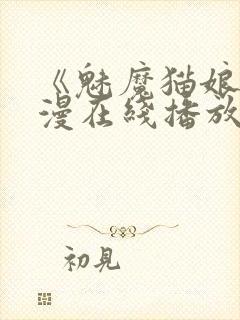 《魅魔猫娘
漫在线播放
初見